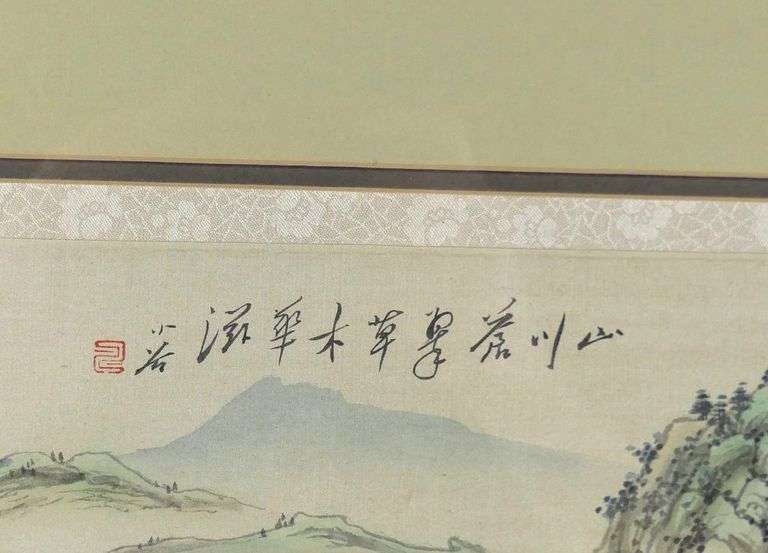 山川蒼翠草木華滋
小谷